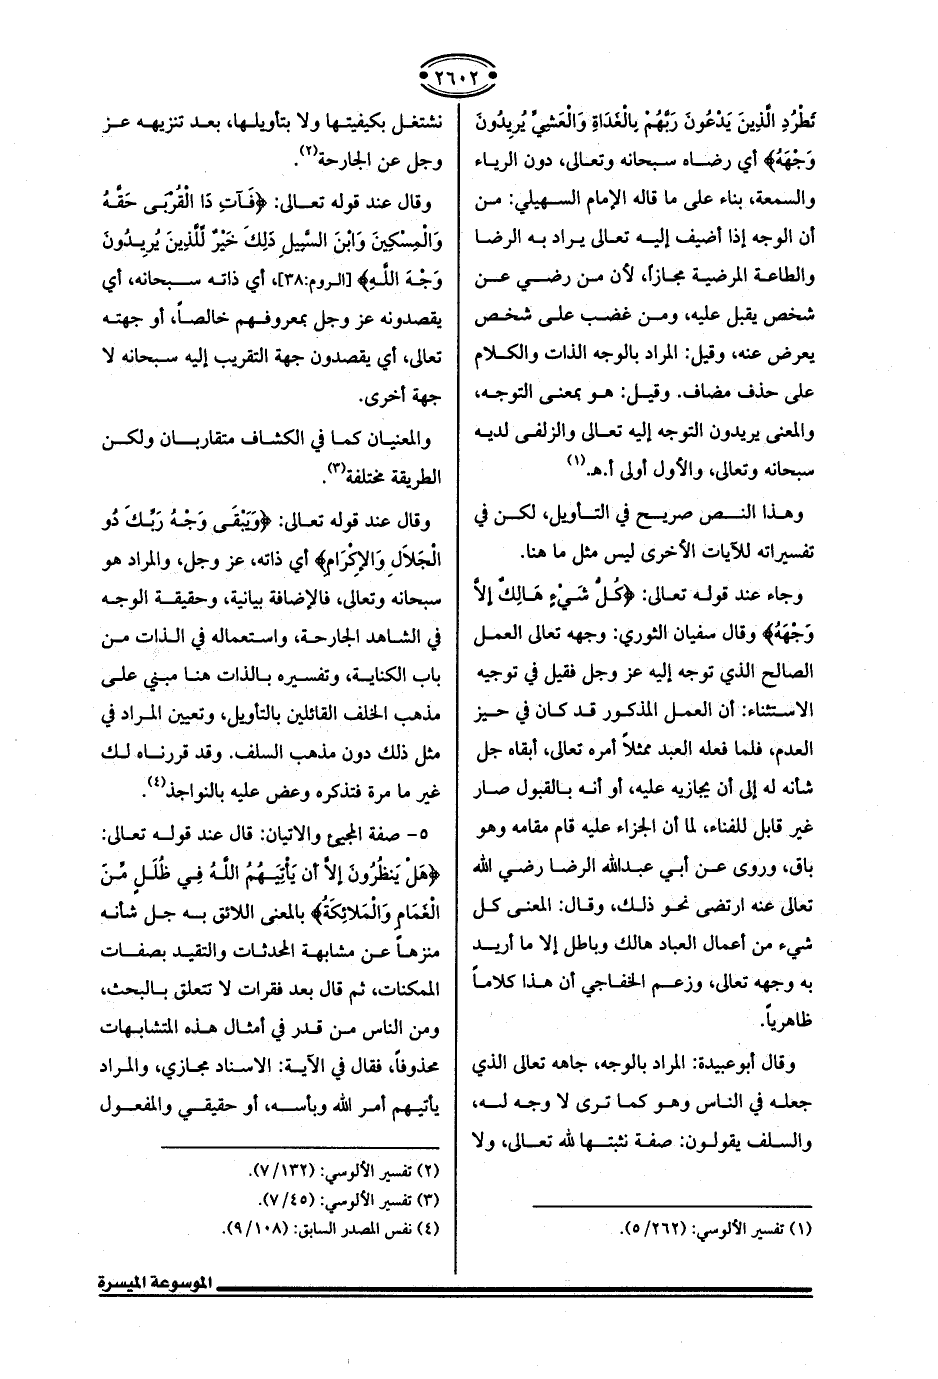 ٢٦٠٢
تَطْرُدِ الَّذِينَ يَدْعُونَ رَبَّهُمْ بِالْغَدَاةِ وَالْعَشِيِّ يُرِيدُونَ
وَجْهَهُ﴾ أي رضاه سبحانه وتعالى، دون الرياء
والسمعة، بناء على ما قاله الإمام السهيلي: من
أن الوجه إذا أضيف إليه تعالى يراد به الرضا
والطاعة المرضية مجازاً، لأن من رضي عن
شخص يقبل عليه، ومن غضب على شخص
يعرض عنه، وقيل: المراد بالوجه الذات والكلام
على حذف مضاف. وقيل: هو بمعنى التوجه،
والمعنى يريدون التوجه إليه تعالى والزلفى لديه
سبحانه وتعالى، والأول أولى أ.هـ.(١)
وهذا النص صريح في التأويل، لكن في
تفسيراته للآيات الأخرى ليس مثل ما هنا.
وجاء عند قوله تعالى: ﴿كُلُّ شَيْءٍ هَالِكٌ إِلاَّ
وَجْهَهُ﴾ وقال سفيان الثوري: وجهه تعالى العمل
الصالح الذي توجه إليه عز وجل فقيل في توجيه
الاستثناء: أن العمل المذكور قد كان في حيز
العدم، فلما فعله العبد ممثلاً أمره تعالى، أبقاه جل
شأنه له إلى أن يجازيه عليه، أو أنه بالقبول صار
غير قابل للفناء، لما أن الجزاء عليه قام مقامه وهو
باق، وروى عن أبي عبدالله الرضا رضي الله
تعالى عنه ارتضى نحو ذلك، وقال: المعنى كل
شيء من أعمال العباد هالك وباطل إلا ما أريد
به وجهه تعالى، وزعم الخفاجي أن هذا كلاماً
ظاهرياً.
وقال أبوعبيدة: المراد بالوجه، جاهه تعالى الذي
جعله في الناس وهو كما ترى لا وجه له،
والسلف يقولون: صفة نثبتها لله تعالى، ولا
(١) تفسير الألوسي: (٥/٢٦٢).
نشتغل بكيفيتها ولا بتأويلها، بعد تنزيهه عز
وجل عن الجارحة(٢).
وقال عند قوله تعالى: ﴿فَآتِ ذَا الْقُرْبَى حَقَّهُ
وَالْمِسْكِينَ وَابْنَ السَّبِيلِ ذَلِكَ خَيْرٌ لِّلَّذِينَ يُرِيدُونَ
وَجْهَ اللَّهِ﴾ [الروم:٣٨]، أي ذاته سبحانه، أي
يقصدونه عز وجل بمعروفهم خالصاً، أو جهته
تعالى، أي يقصدون جهة التقريب إليه سبحانه لا
جهة أخرى.
والمعنيان كما في الكشاف متقاربان ولكن
الطريقة مختلفة(٣).
وقال عند قوله تعالى: ﴿وَيَبْقَى وَجْهُ رَبِّكَ ذُو
الْجَلاَلِ وَالإِكْرَامِ﴾ أي ذاته، عز وجل، والمراد هو
سبحانه وتعالى، فالإضافة بيانية، وحقيقة الوجه
في الشاهد الجارحة، واستعماله في الذات من
باب الكناية، وتفسيره بالذات هنا مبني على
مذهب الخلف القائلين بالتأويل، وتعيين المراد في
مثل ذلك دون مذهب السلف. وقد قررناه لك
غير ما مرة فتذكره وعض عليه بالنواجذ(٤).
٥- صفة المجيئ والاتيان: قال عند قوله تعالى:
﴿هَلْ يَنظُرُونَ إِلاَّ أَن يَأْتِيَهُمُ اللَّهُ فِي ظُلَلٍ مِّنَ
الْغَمَامِ وَالْمَلائِكَةُ﴾ بالمعنى اللائق به جل شأنه
منزهاً عن مشابهة المحدثات والتقيد بصفات
الممكنات، ثم قال بعد فقرات لا تتعلق بالبحث،
ومن الناس من قدر في أمثال هذه المتشابهات
محذوفاً، فقال في الآية: الاسناد مجازي، والمراد
يأتيهم أمر الله وبأسه، أو حقيقي والمفعول
(٢) تفسير الألوسي: (٧/١٣٢).
(٣) تفسير الألوسي: (٧/٤٥).
(٤) نفس المصدر السابق: (٩/١٠٨).
الموسوعة الميسرة